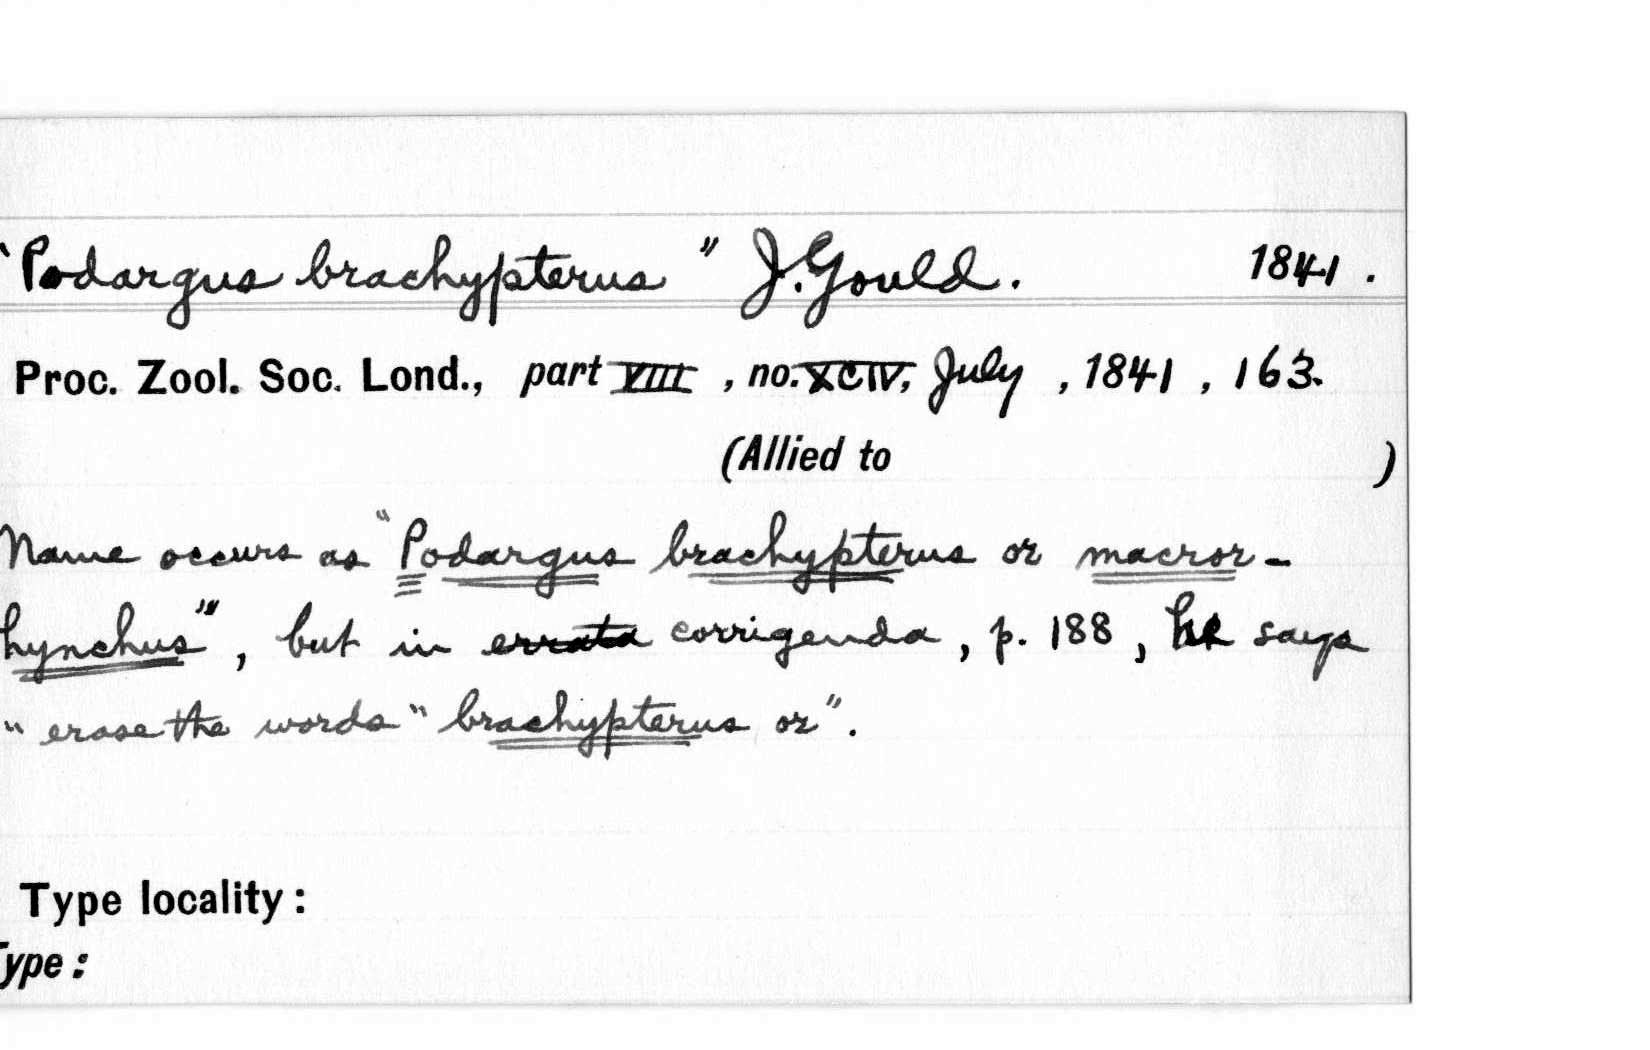 "Podargus brachypterus" J. Gould. 1841.
Proc. Zool. Soc. Lond., part VIII, no. XCIV, July, 1841, 163.
(Allied to )
Name occurs as "Podargus brachypterus or macror-
hynchus", but in errata corrigenda, p. 188, he says
"erase the words "brachypterus or".
Type locality:
Type: